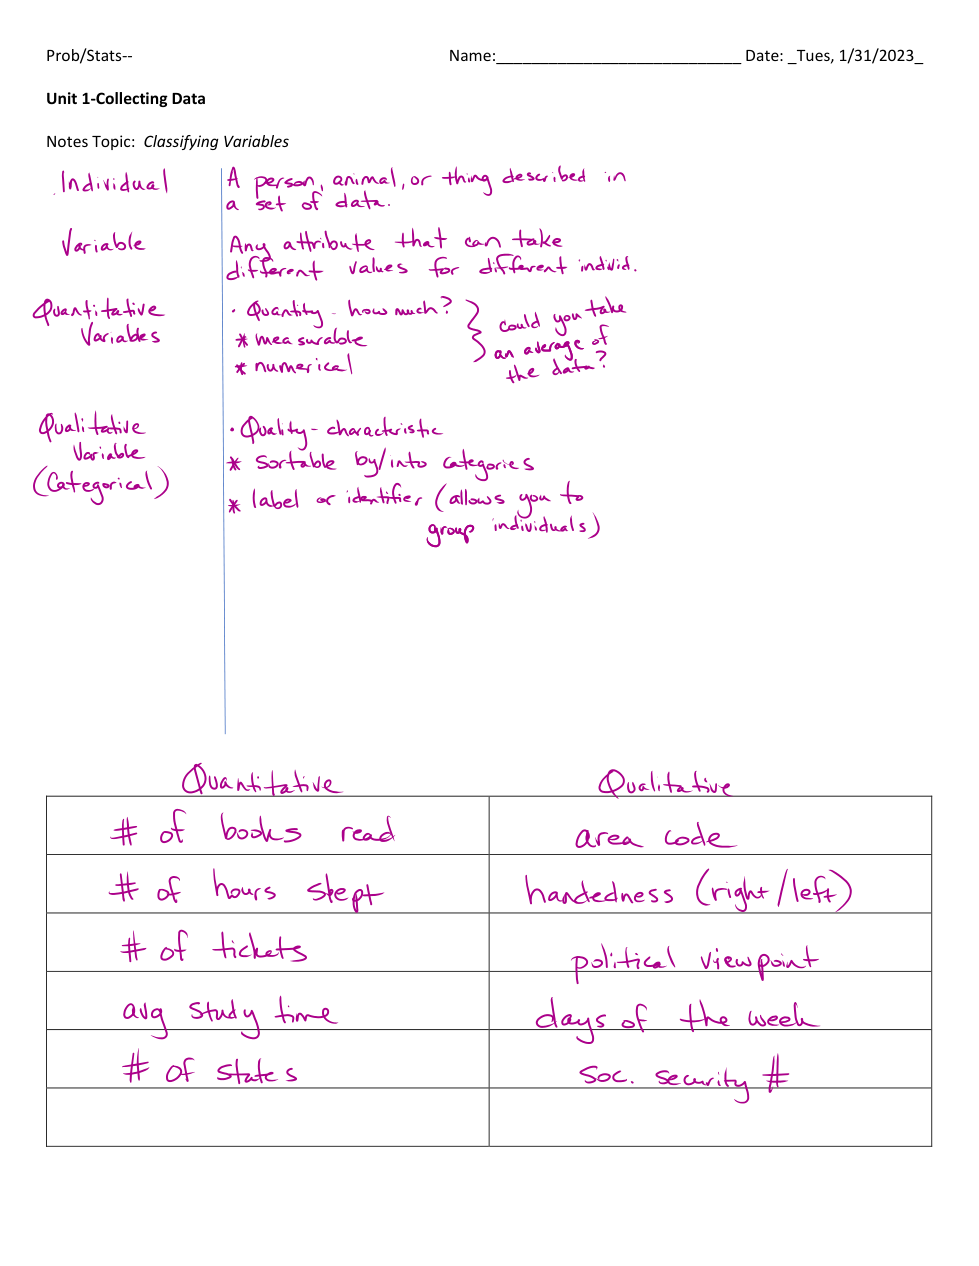 Prob/Stats-- Name:____________________________ Date: _Tues, 1/31/2023_
Unit 1-Collecting Data
Notes Topic: Classifying Variables
Individual
A person, animal, or thing described in
a set of data.
Variable
Any attribute that can take
different values for different individ.
Quantitative
Variables
• Quantity - how much?
* measurable
* numerical
could you take
an average of
the data?
Qualitative
Variable
(Categorical)
• Quality - characteristic
* sortable by/into categories
* label or identifier (allows you to
group individuals)
Quantitative Qualitative
# of books read area code
# of hours slept handedness (right/left)
# of tickets political viewpoint
avg study time days of the week
# of states Soc. security #